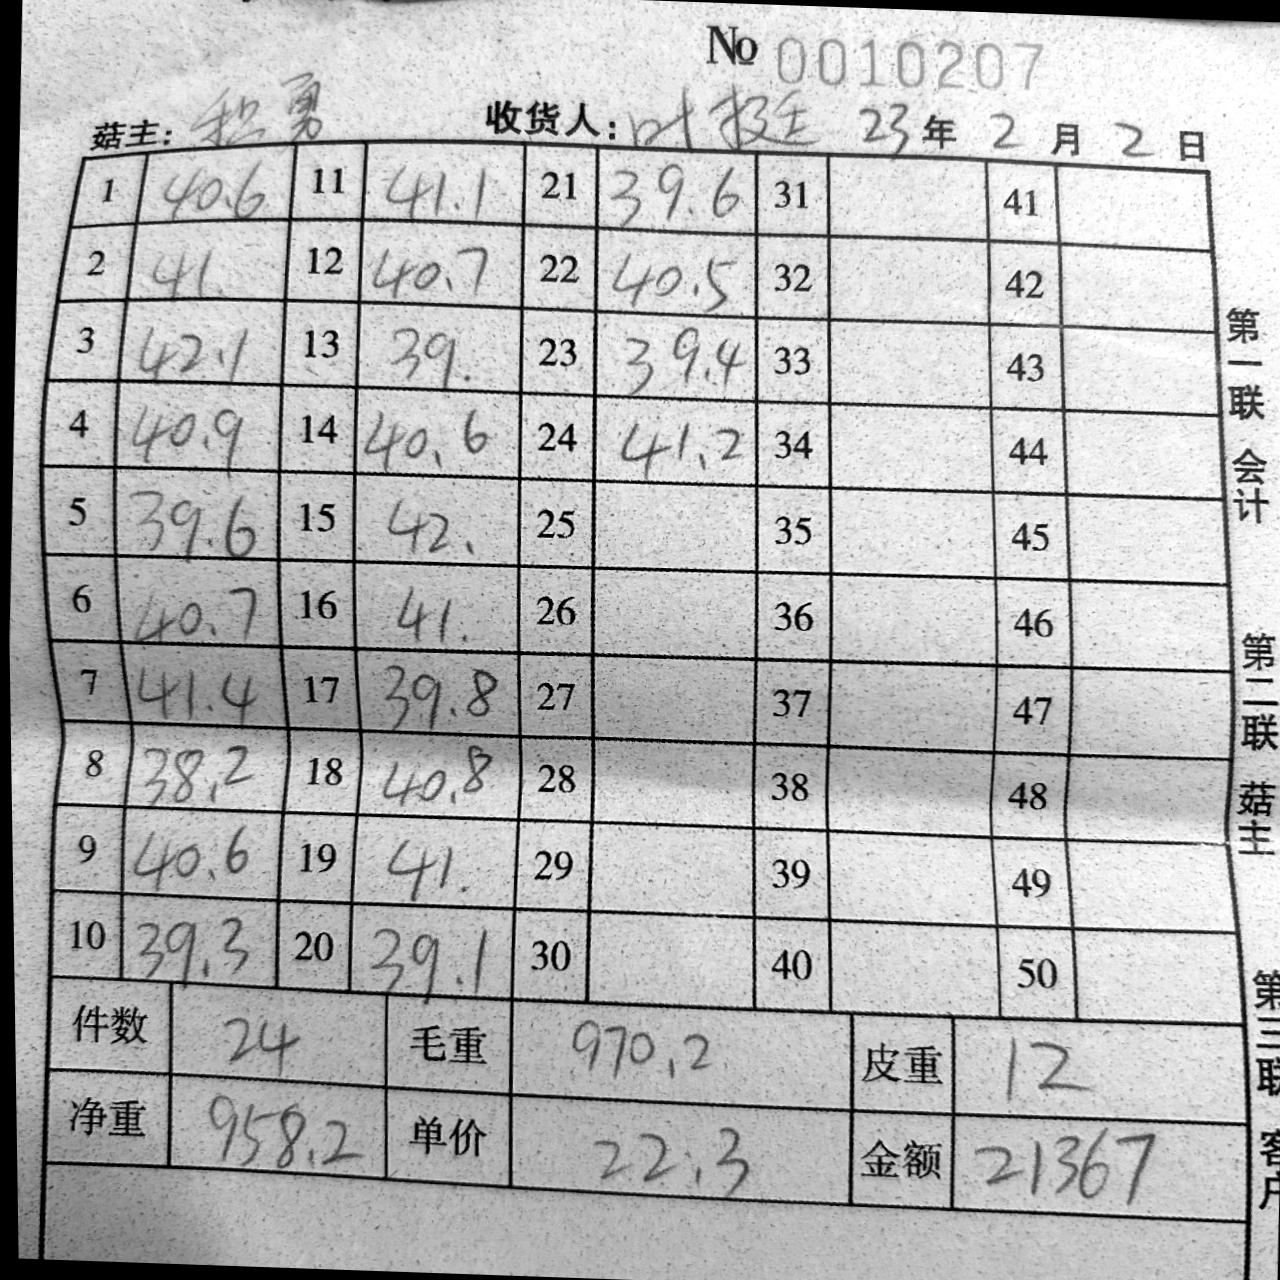 № 0010207
菇主: 积勇 收货人: 叶挺 23年 2月 2日
1 40.6 11 41.1 21 39.6 31 41
2 41. 12 40.7 22 40.5 32 42
3 42.1 13 39. 23 39.4 33 43
4 40.9 14 40.6 24 41.2 34 44
5 39.6 15 42. 25 35 45
6 40.7 16 41. 26 36 46
7 41.4 17 39.8 27 37 47
8 38.2 18 40.8 28 38 48
9 40.6 19 41. 29 39 49
10 39.3 20 39.1 30 40 50
件数 24 毛重 970.2 皮重 12
净重 958.2 单价 22.3 金额 21367
第一联 会计
第二联 菇主
第三联 客户